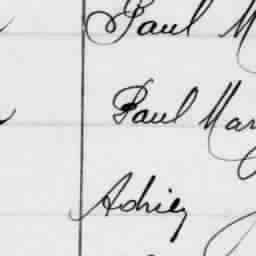 Paul M
Paul Mar
Adrien